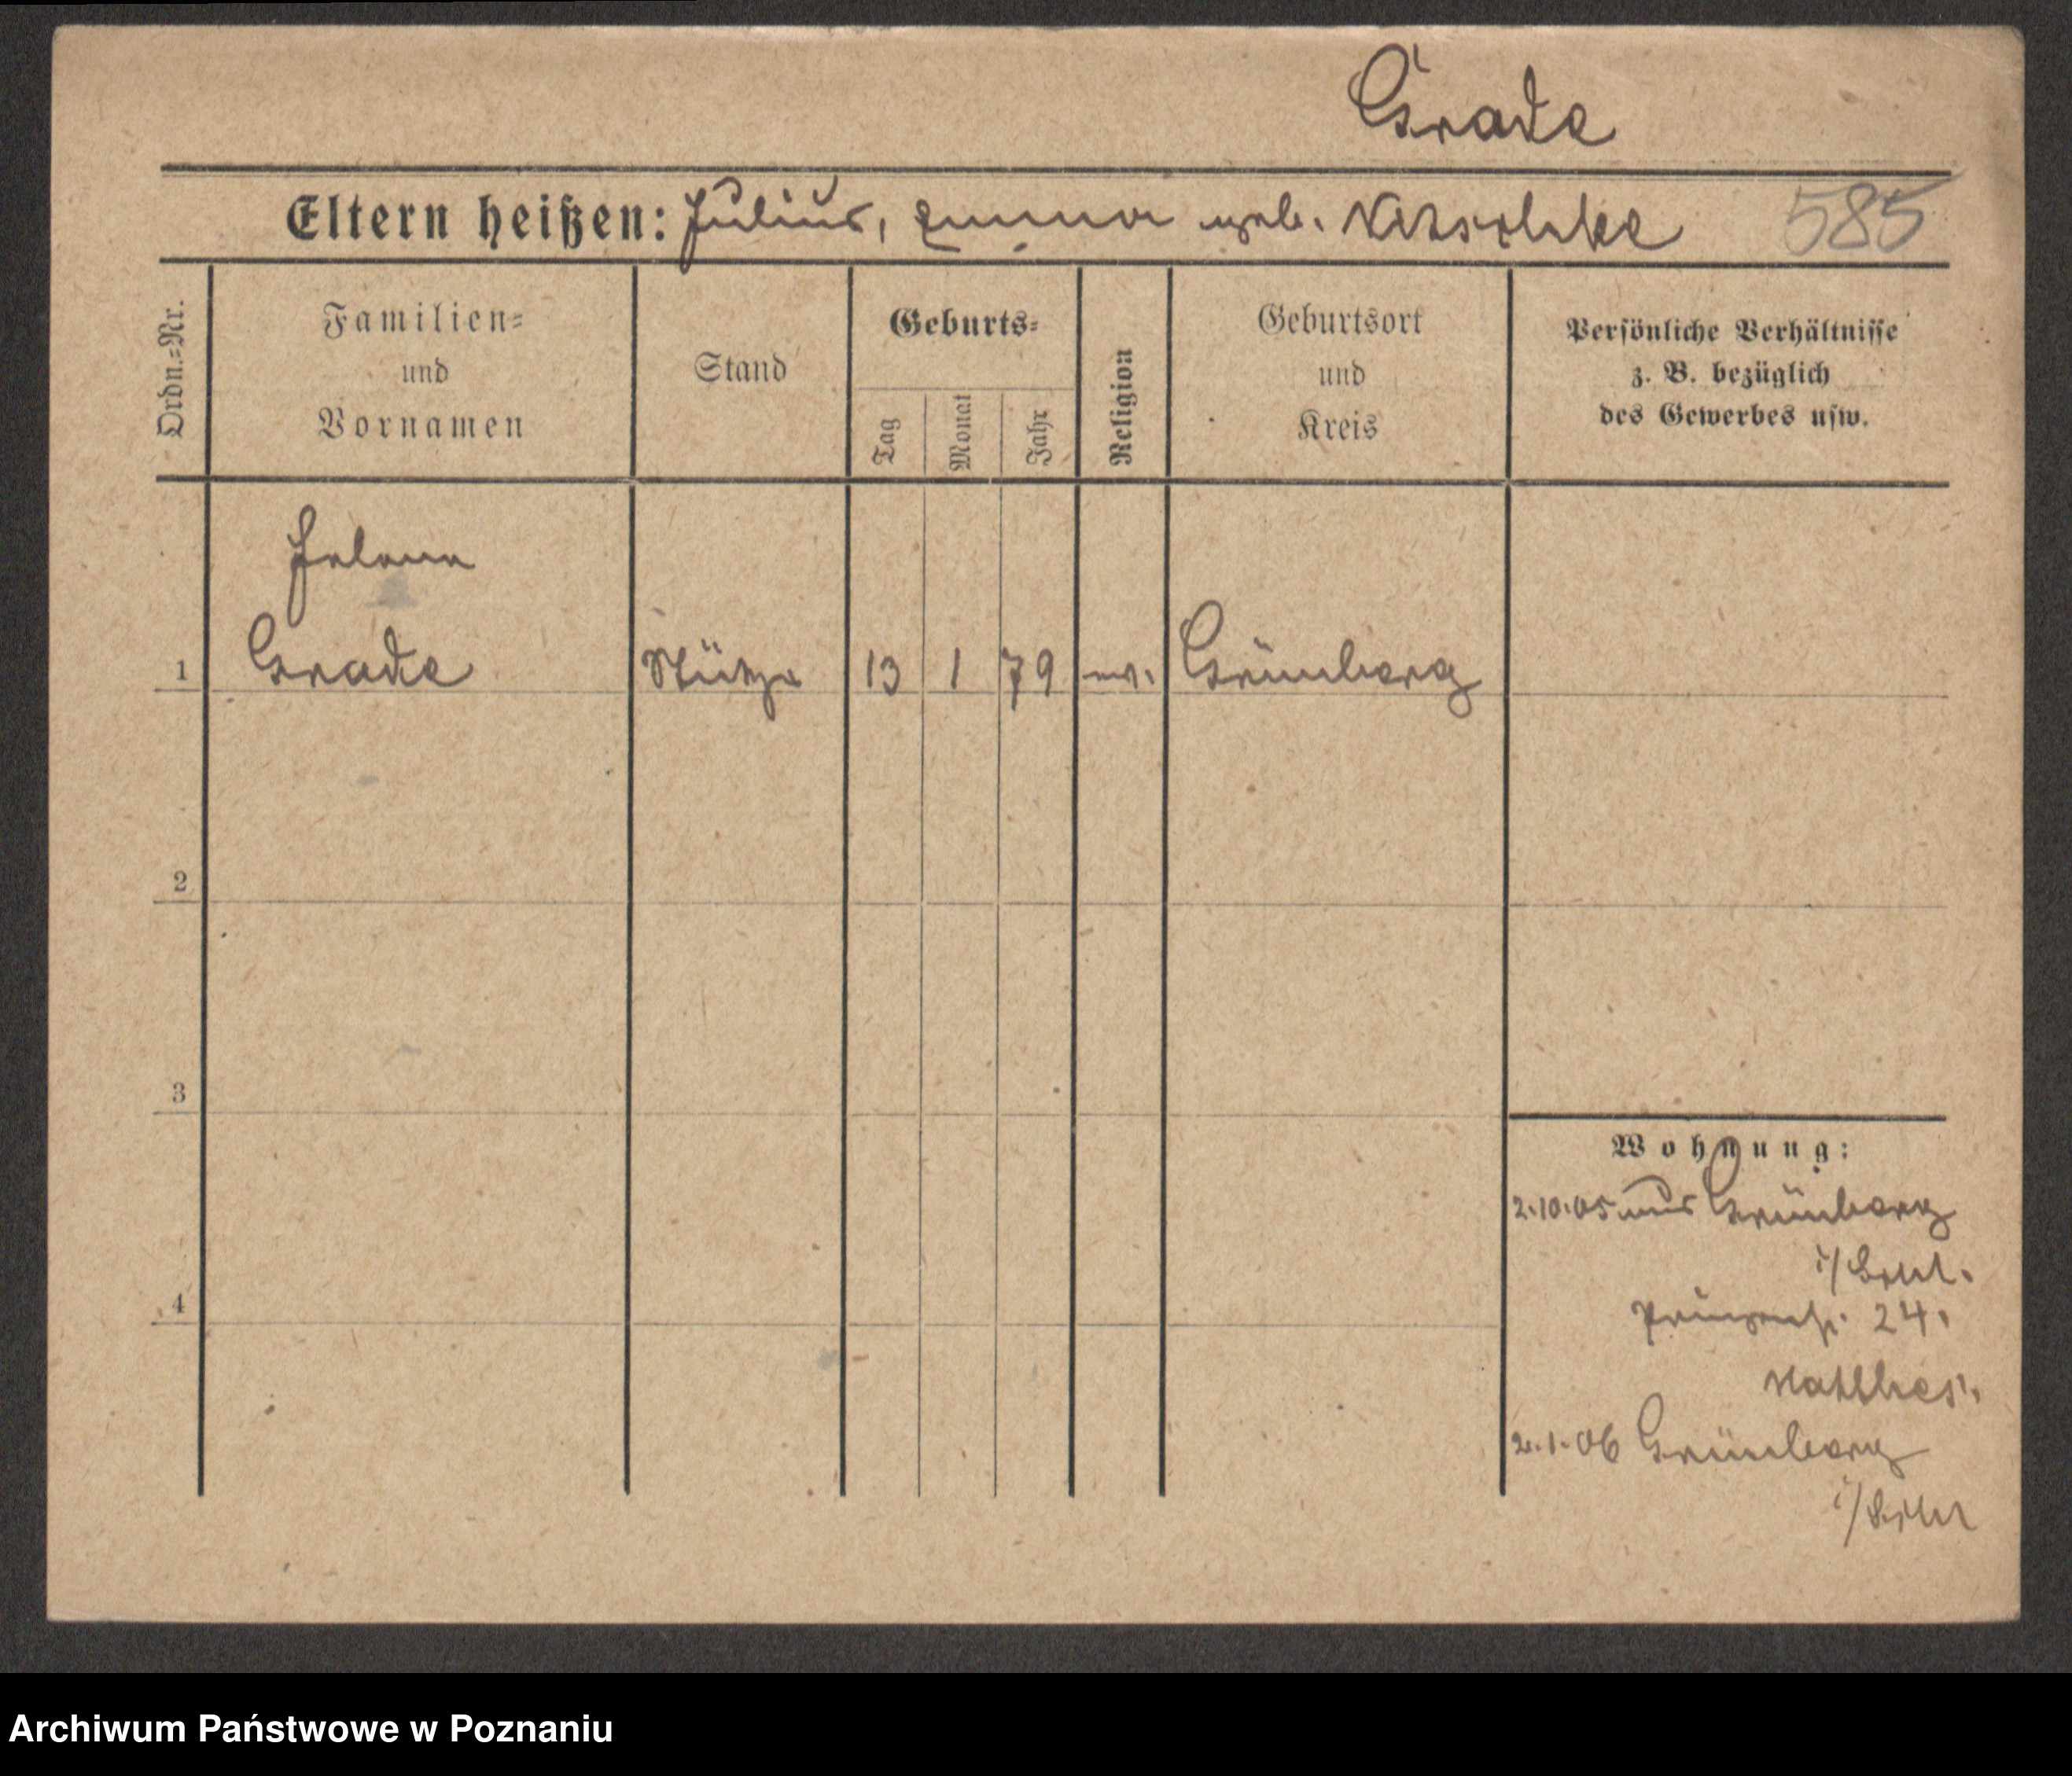 Grade
Eltern heißen: Julius, Emma geb. Nitschke 585
Ordn.=Nr.
Familien=
und
Vornamen
Stand
Geburts=
Tag
Monat
Jahr
Religion
Geburtsort
und
Kreis
Persönliche Verhältnisse
z. B. bezüglich
des Gewerbes usw.
Helene
1 Grade Stütze 13 1 79 ev. Grünberg
2
3
4
Wohnung:
2.10.05 aus Grünberg
i/Schl.
Prinzenstr. 24.
Matthes.
2.1.06 Grünberg
i/Schl
Archiwum Państwowe w Poznaniu